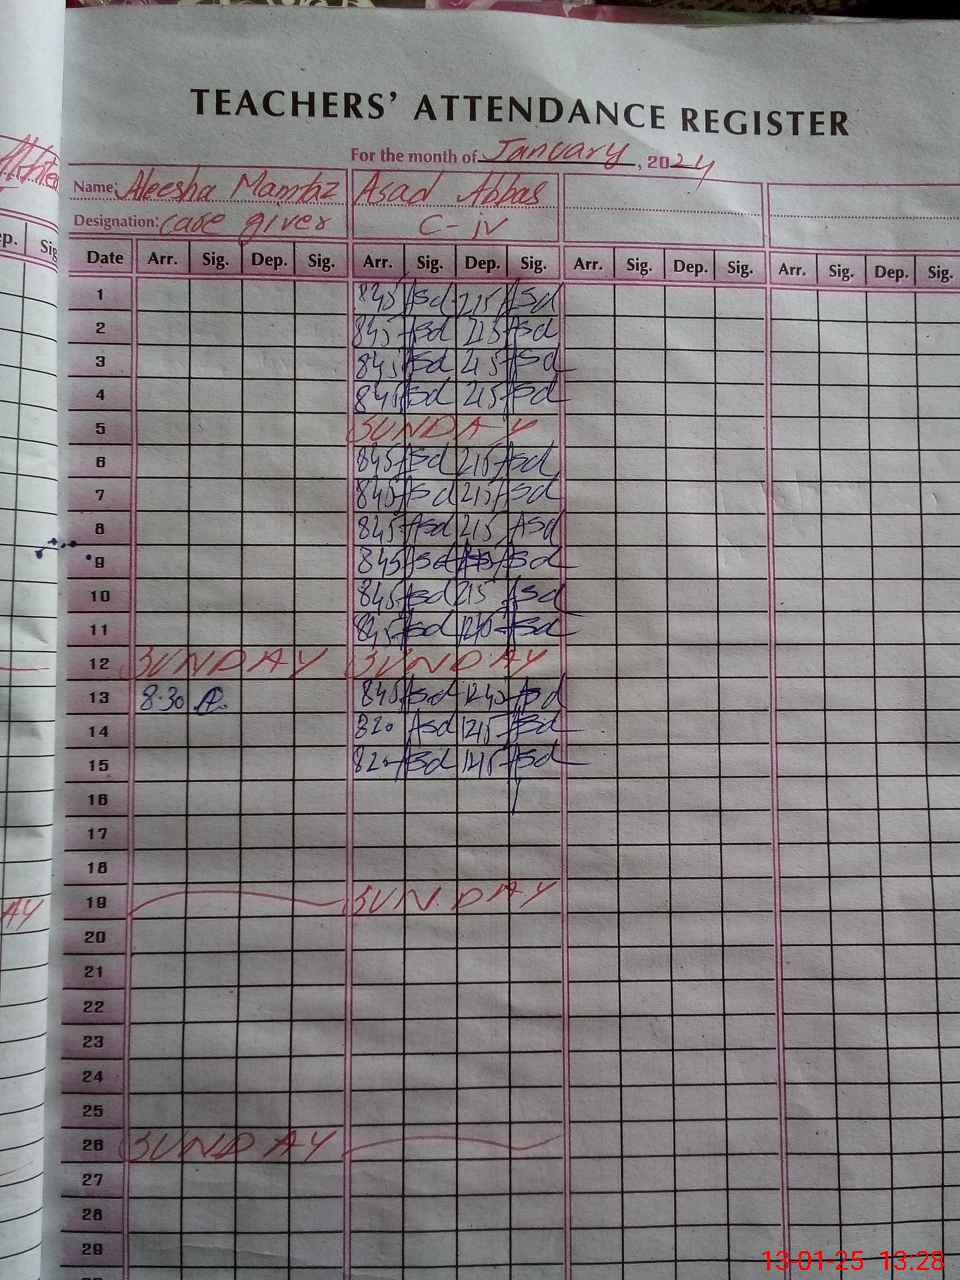 TEACHERS' ATTENDANCE REGISTER
For the month of January, 2024
Name: Aleesha Mamtaz Asad Abbas
Designation: care giver C-iv
Date Arr. Sig. Dep. Sig. Arr. Sig. Dep. Sig. Arr. Sig. Dep. Sig. Arr. Sig. Dep. Sig.
1 845 Asd 215 Asd
2 845 Asd 215 Asd
3 845 Asd 215 Asd
4 845 Asd 215 Asd
5 SUNDAY
6 845 Asd 215 Asd
7 845 Asd 215 Asd
8 845 Asd 215 Asd
9 845 Asd Asd
10 845 Asd 215 Asd
11 845 Asd Asd
12 SUNDAY SUNDAY
13 8.30 845 Asd 1245 Asd
14 820 Asd 1215 Asd
15 820 Asd 1215 Asd
16
17
18
19 SUNDAY
20
21
22
23
24
25
26 SUNDAY
27
28
29
ep. Sig
AY
13-01-25 13:28